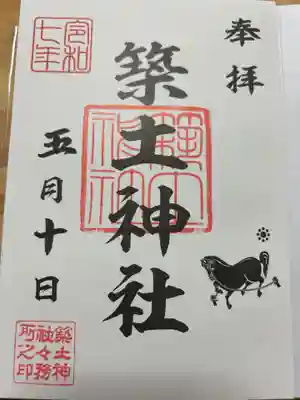 奉拝
築土神社
築土
神社
令和
七年
五月十日
築土神
社々務
所之印